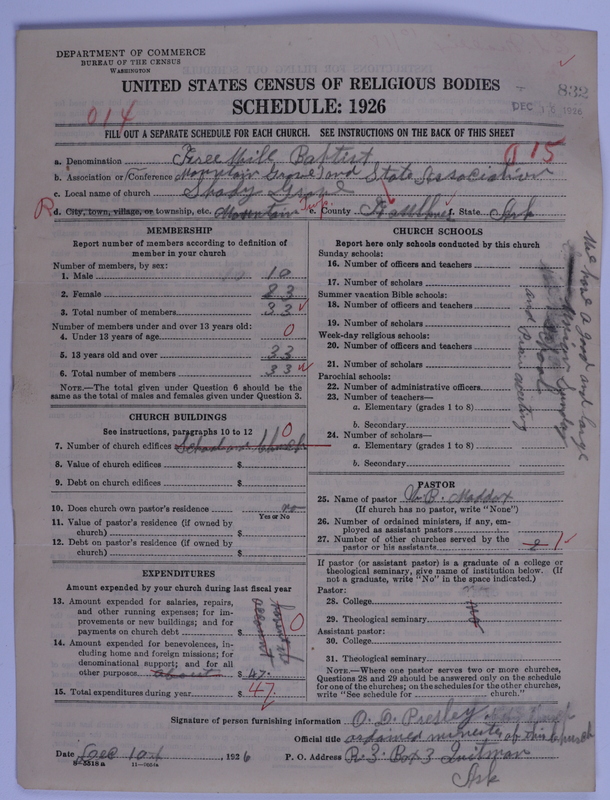 DEPARTMENT OF COMMERCE
BUREAU OF THE CENSUS
WASHINGTON
UNITED STATES CENSUS OF RELIGIOUS BODIES
SCHEDULE: 1926
832
DEC 16 1926
014
FILL OUT A SEPARATE SCHEDULE FOR EACH CHURCH. SEE INSTRUCTIONS ON THE BACK OF THIS SHEET
a. Denomination Free Will Baptist
15
b. Association or Conference Mountain Grove and State Association
c. Local name of church Shady Grove
R d. City, town, village, or township, etc. Mountain Twp. e. County f. State Ark
MEMBERSHIP
Report number of members according to definition of member in your church
Number of members, by sex:
1. Male 10
2. Female 23
3. Total number of members 33
Number of members under and over 13 years old:
4. Under 13 years of age 0
5. 13 years old and over 33
6. Total number of members 33
NOTE.—The total given under Question 6 should be the same as the total of males and females given under Question 3.
CHURCH BUILDINGS
See instructions, paragraphs 10 to 12
7. Number of church edifices 0
8. Value of church edifices $
9. Debt on church edifices $
10. Does church own pastor's residence no
Yes or No
11. Value of pastor's residence (if owned by church) $
12. Debt on pastor's residence (if owned by church) $
EXPENDITURES
Amount expended by your church during last fiscal year
13. Amount expended for salaries, repairs, and other running expenses; for improvements or new buildings; and for payments on church debt $ 0
account
14. Amount expended for benevolences, including home and foreign missions; for denominational support; and for all other purposes about $ 47.
15. Total expenditures during year $ 47
CHURCH SCHOOLS
Report here only schools conducted by this church
Sunday schools:
16. Number of officers and teachers
17. Number of scholars
Summer vacation Bible schools:
18. Number of officers and teachers
19. Number of scholars
Week-day religious schools:
20. Number of officers and teachers
21. Number of scholars
Parochial schools:
22. Number of administrative officers
23. Number of teachers—
a. Elementary (grades 1 to 8)
b. Secondary
24. Number of scholars—
a. Elementary (grades 1 to 8)
b. Secondary
We have a good and large
Sunday
School
and
PASTOR
25. Name of pastor W. B. Maddox
(If church has no pastor, write "None")
26. Number of ordained ministers, if any, employed as assistant pastors
27. Number of other churches served by the pastor or his assistants 2
If pastor (or assistant pastor) is a graduate of a college or theological seminary, give name of institution below. (If not a graduate, write "No" in the space indicated.)
Pastor:
28. College no
29. Theological seminary
Assistant pastor:
30. College
31. Theological seminary
NOTE.—Where one pastor serves two or more churches, Questions 28 and 29 should be answered only on the schedule for one of the churches; on the schedules for the other churches, write "See schedule for church."
Signature of person furnishing information O. D. Presley
Official title ordained minister of this church
Date Dec 1926 P. O. Address R. 3. Box 3 Quitman
Ark